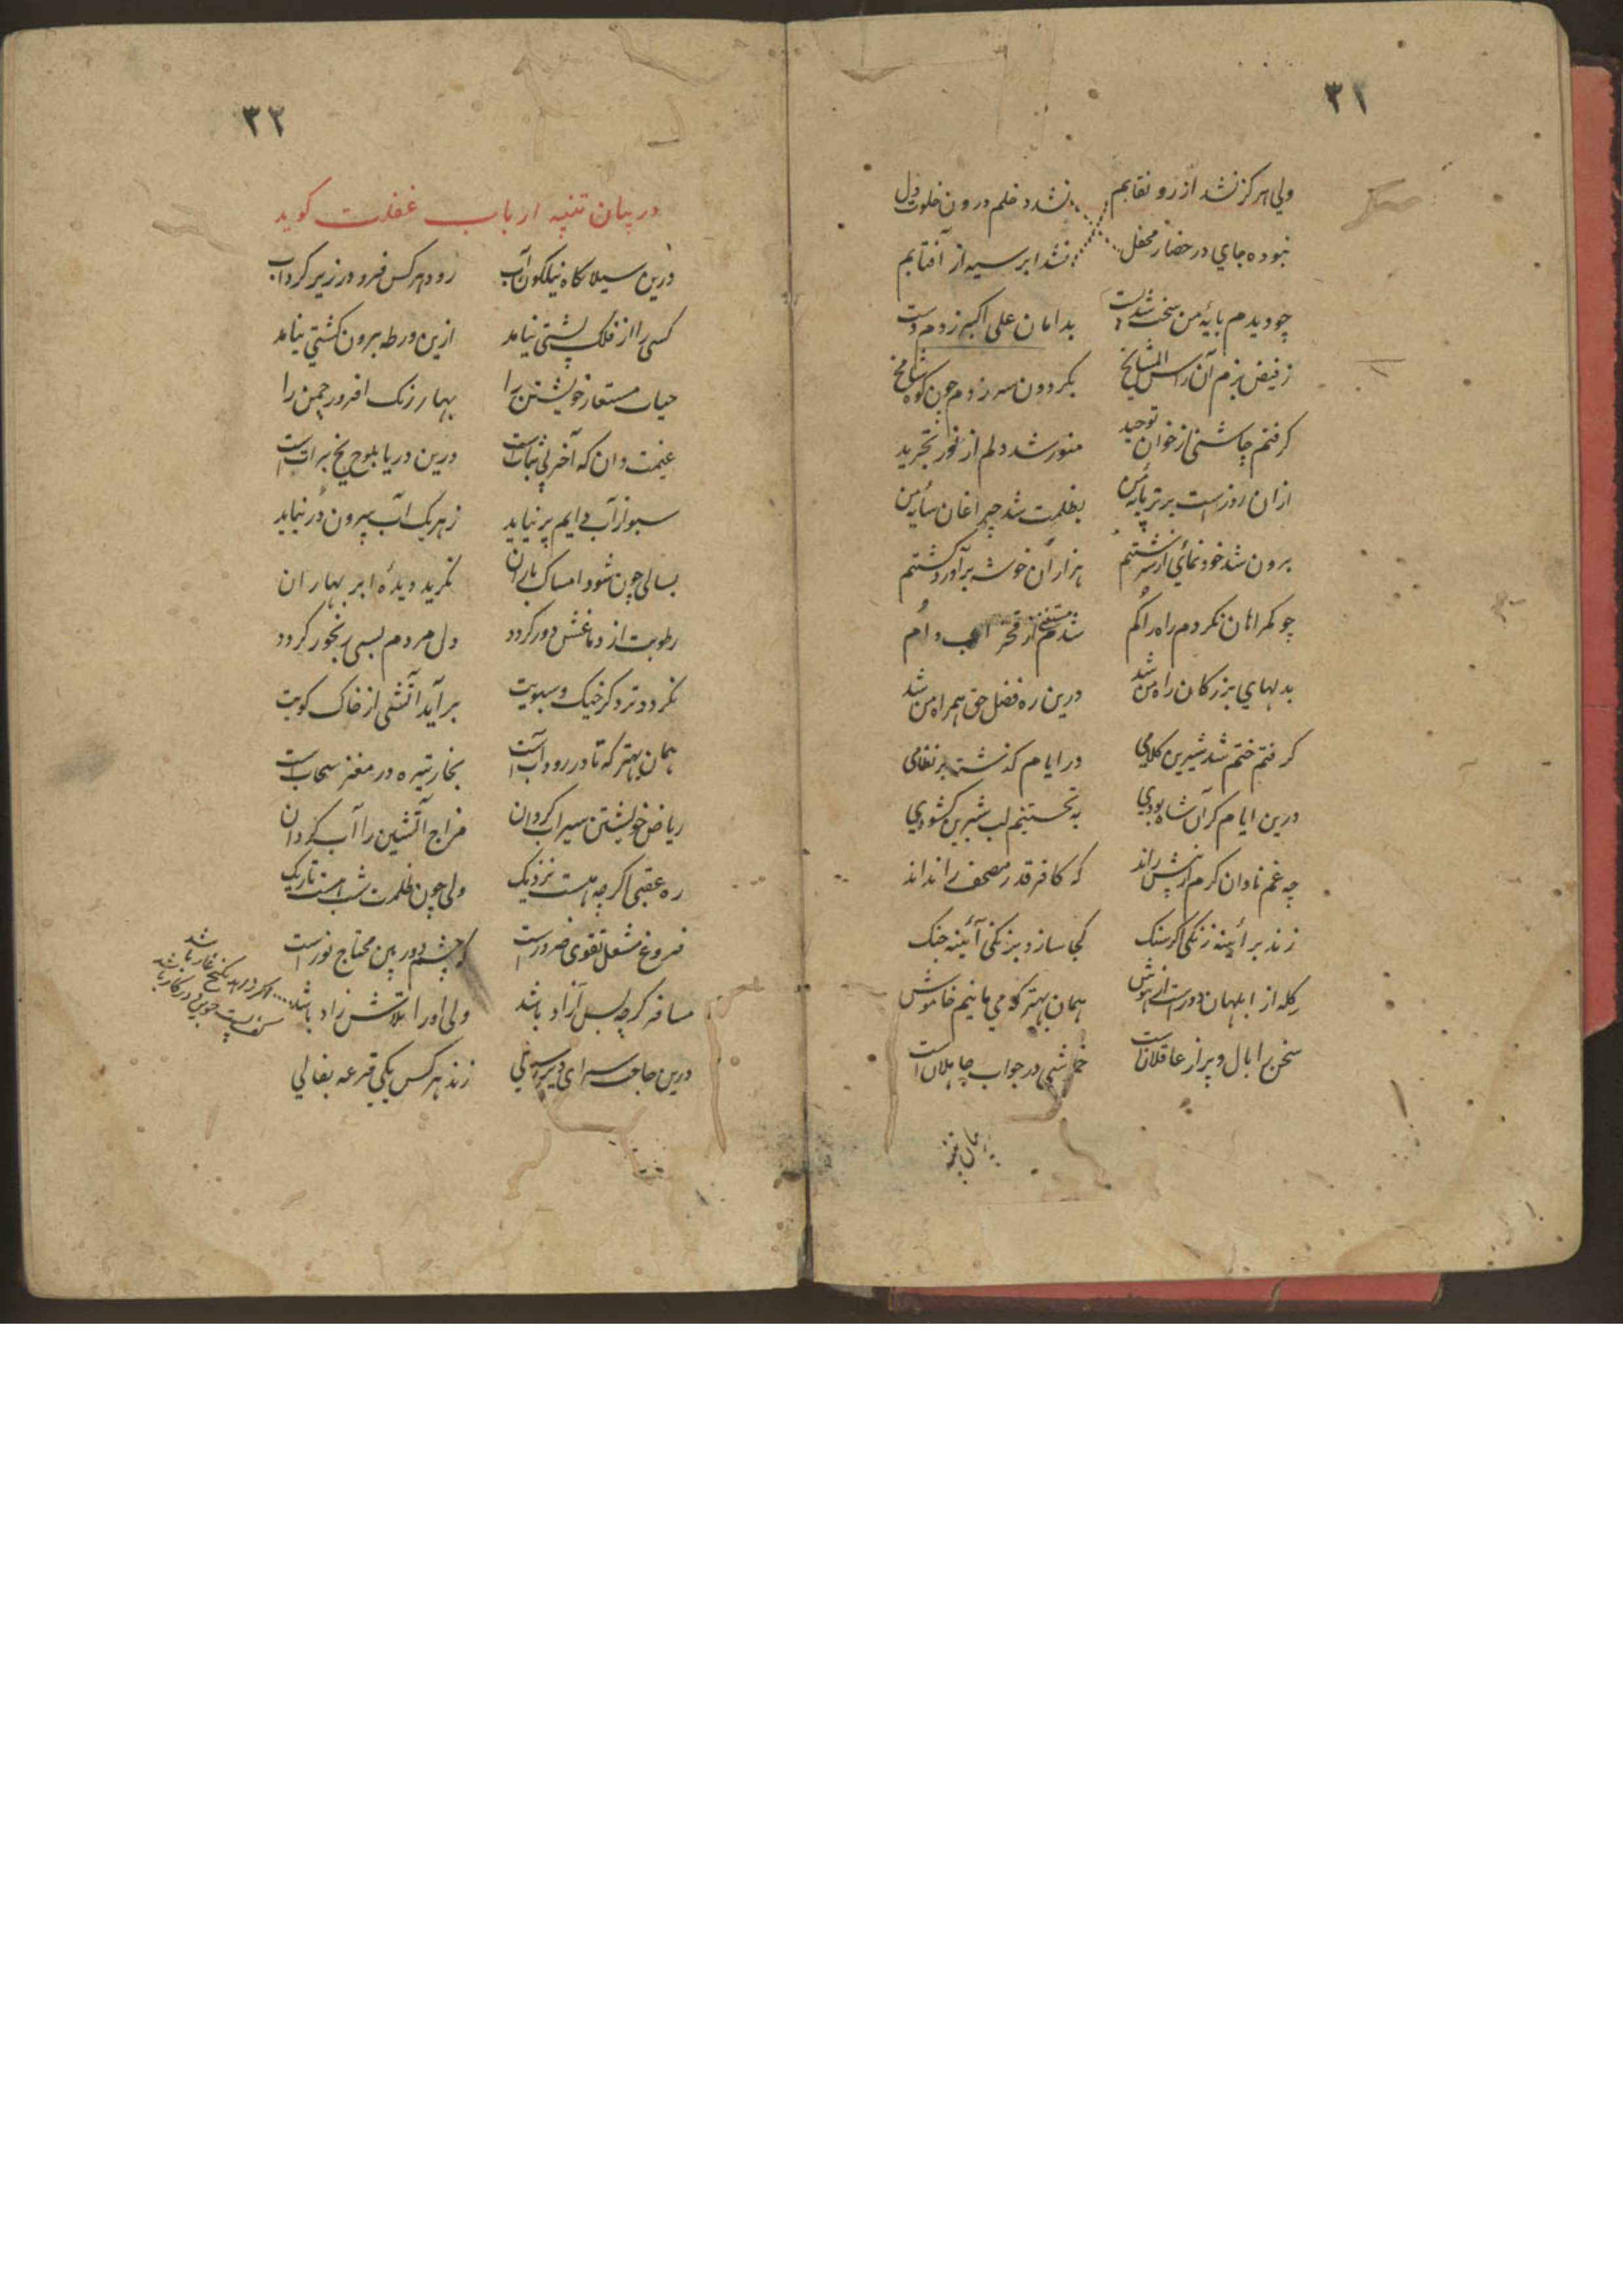 ۳۱
ولی هرگز نشد از رو نقابم نشد دخلم درون خلوت دل
نبوده جای در حضار محفل نشد ابر سیه از آفتابم
چو دیدم پایهٔ من سخت شد پست بدامان علی اکبر زدم دست
ز فیض بزم آن راس المشایخ بکردون سر زدم چون کوه شامخ
کرفتم چاشنی از خوان توحید منور شد دلم از نور تجرید
ازان روزست برتر پایهٔ من بظلمت شد چراغان سایهٔ من
برون شد خودنمائی از سرشتم هزاران خوشه برآورد کشتم
چو کمراهان نکردم راه را کم شدم مستغنی از فخر اب و ام
بدلهای بزرکان راه من شد درین ره فضل حق همراه من شد
کرفتم ختم شد شیرین کلامی در ایام کذشته بر نظامی
درین ایام کر آن شاه بودی به تحسینم لب شیرین کشودی
چه غم نادان کرم از پیش راند که کافر قدر مصحف را نداند
زند بر آینه زنکی اکر سنک کجا سازد بزنکی آئینه جنک
کله از ابلهان دورست از هوش همان بهتر که می مانیم خاموش
سخن را بال و پر از عاقلانست خموشی در جواب جاهلانست
۳۲
در بیان تنبیه ارباب غفلت کوید
درین سیلا کاه نیلکون آب رود هر کس فرو در زیر کرداب
کسی را از فلک پشتی نیامد ازین ورطه برون کشتی نیامد
حیات مستعار خویشتن را بهار رنک افروز چمن را
غنیمت دان که آخر بی ثباتست درین دریا بلوح یخ براتست
سبو از آب دایم پر نیاید ز هر یک آب بیرون در نیاید
بسالی چون شود امساک باران نکرید دیدهٔ ابر بهاران
رطوبت از دماغش دور کردد دل مردم بسی رنجور کردد
نکردد تر دکر خیک و سبویت برآید آتشی از خاک کویت
همان بهتر که تا در رود آبست بخار تیره در مغز سحابست
ریاض خویشتن سیراب کردان مزاج آتشین را آب کردان
ره عقبی اکرچه هست نزدیک ولی چون ظلمت شب هست تاریک
فروغ مشعل تقوی ضرورست که چشم دوربین محتاج نورست
مسافر کرچه بس آزاد باشد ولی او را تلاش زاد باشد
اکر در راهد یکنج غار باشد
کف پست جوین در کار باشد
درین جامه سرای دیر سالی زند هر کس یکی قرعه بفالی